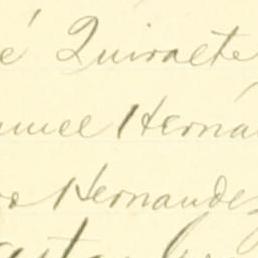 é Quiralte
nuel Herná
so Hernandez